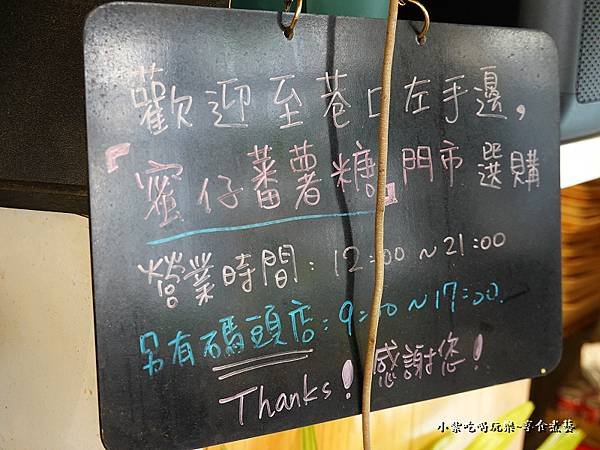 歡迎至巷口左手邊，
「蜜仔蕃薯糖」門市選購
營業時間：12:00～21:00
另有碼頭店：9:00～17:00
Thanks！感謝您！
小紫吃喝玩樂~享企煮藝